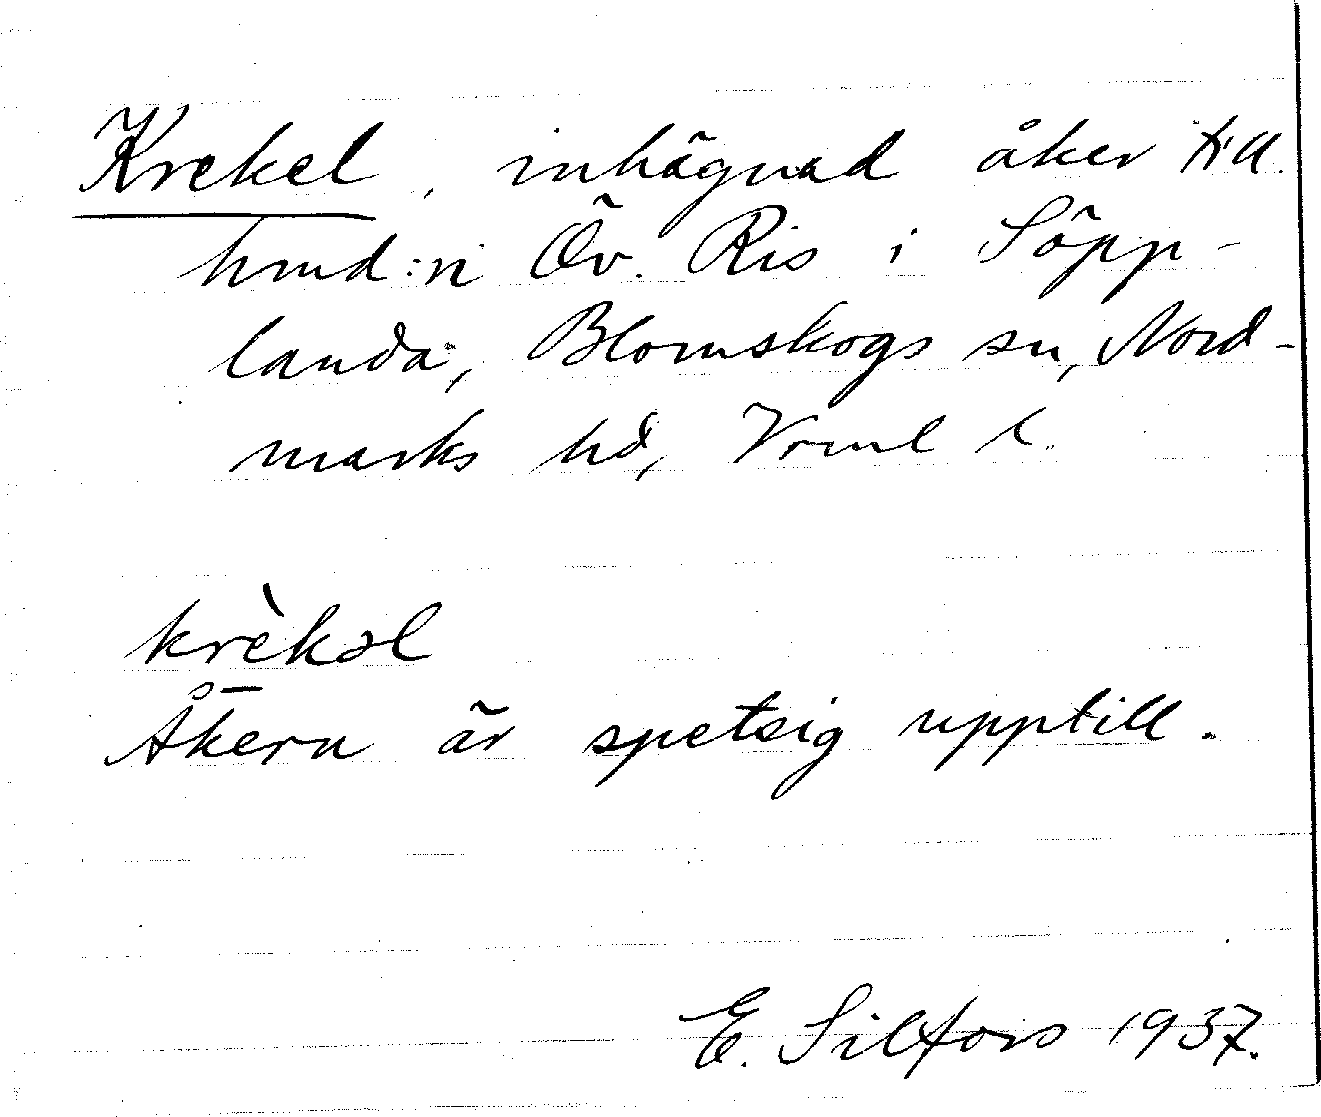 Krekel, inhägnad åker till
hmd:n Öv. Ris i Söpp-
landa, Blomskogs sn, Nord-
marks hd, Vrml l.
krèkəl
Åkern är spetsig upptill.
E. Silfors 1937.